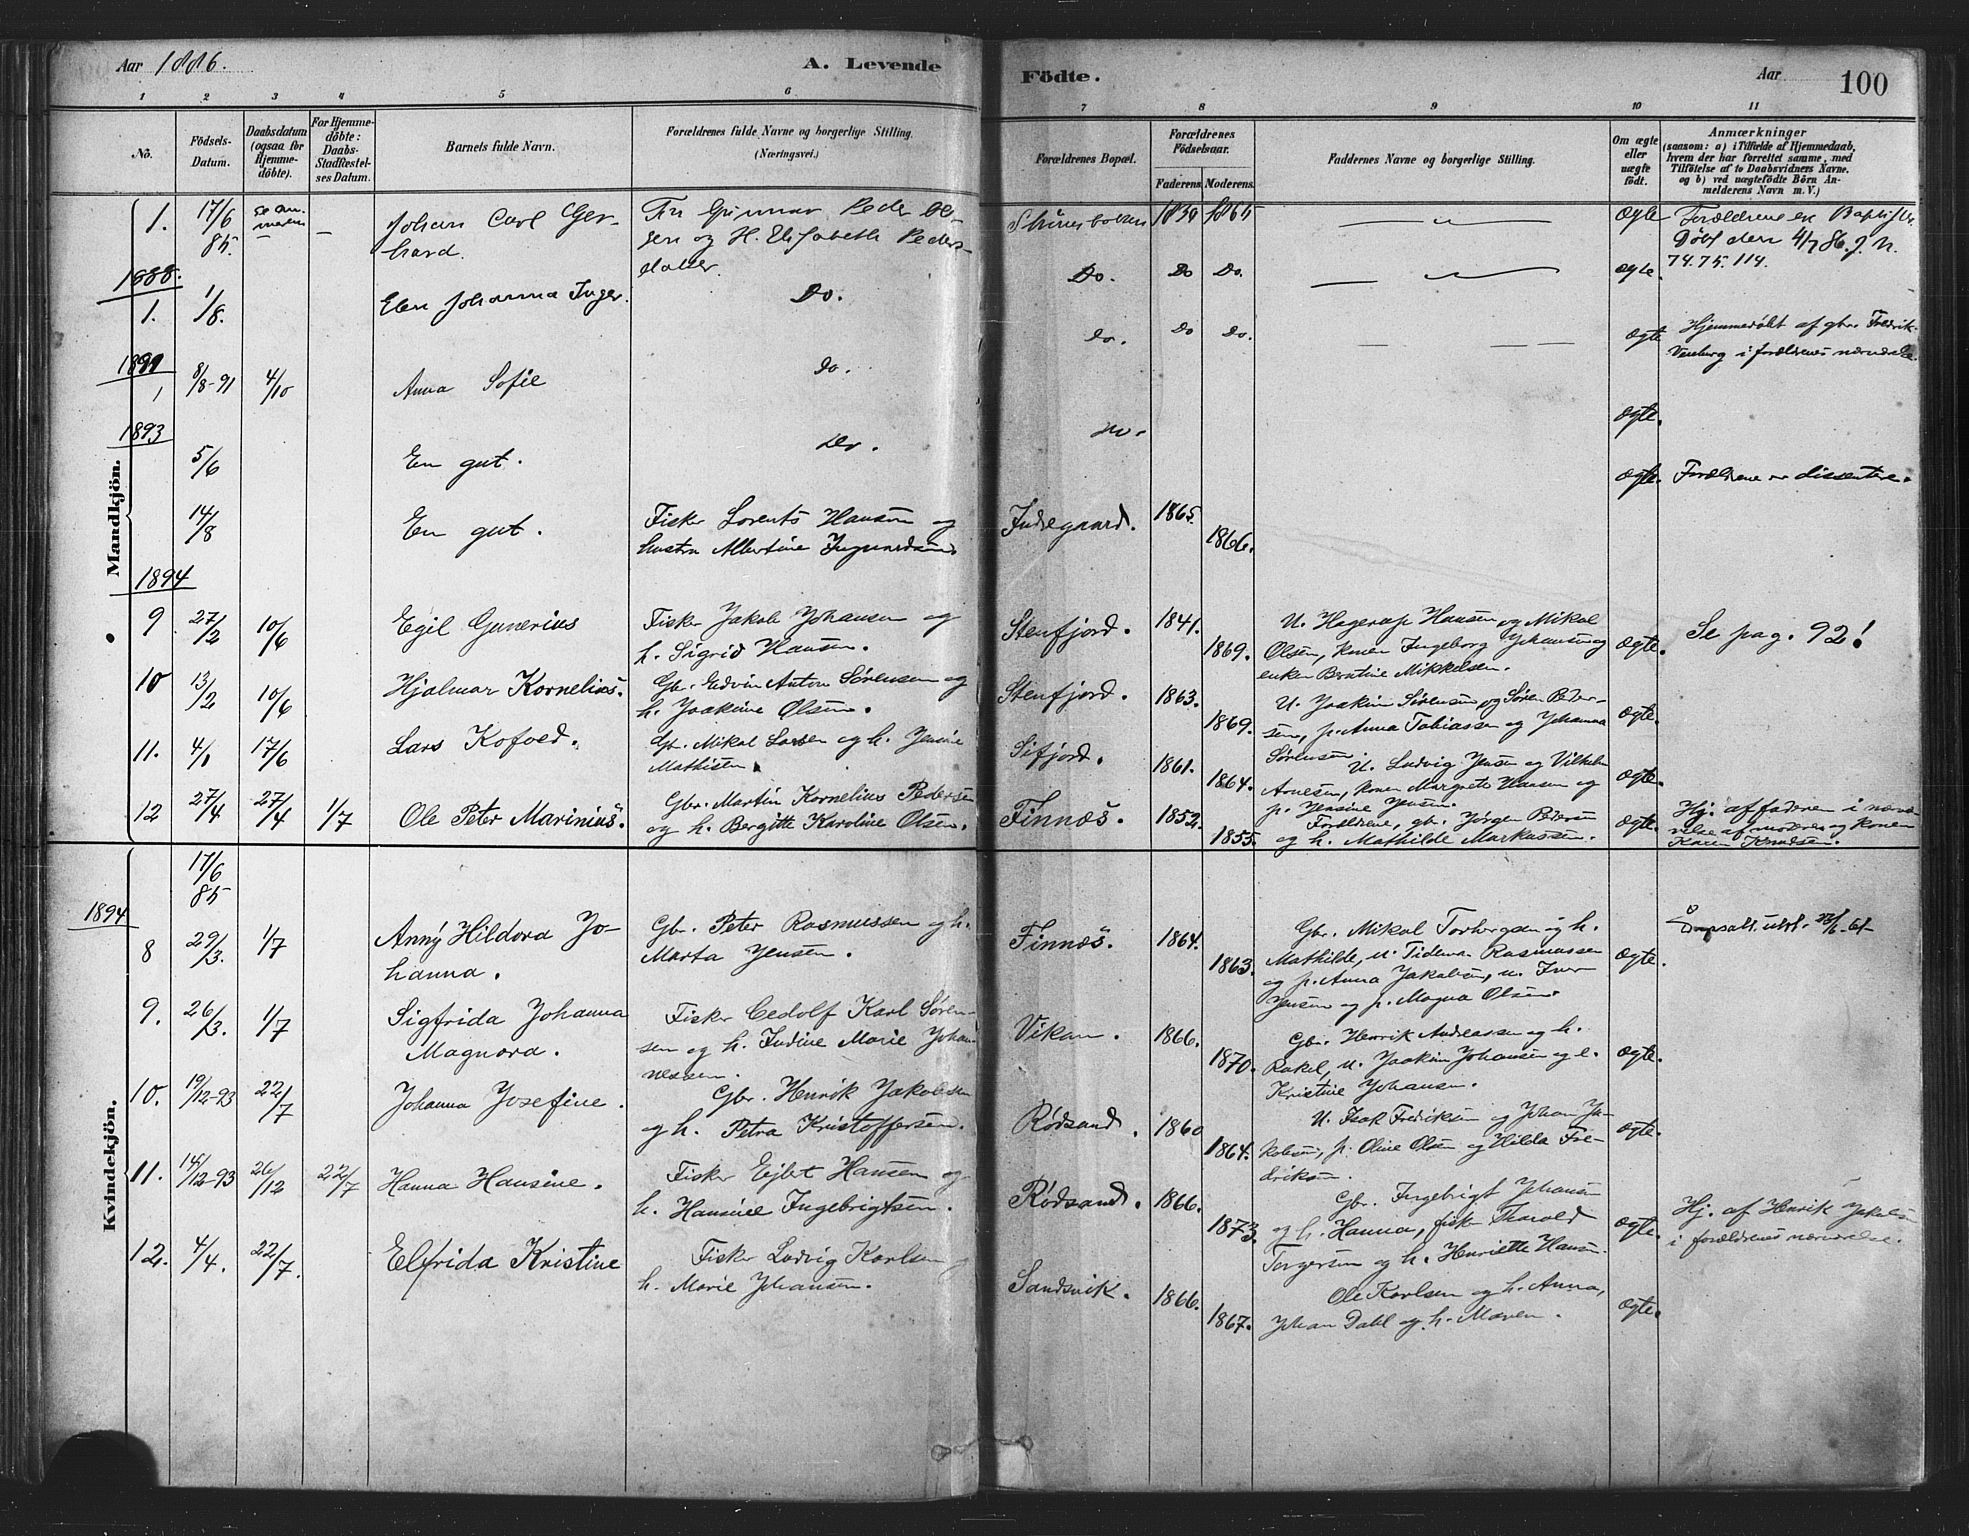 Aar 1886.
A. Levende Födte.
Aar 100
1 2 3 4 5 6 7 8 9 10 11
No.
Födsels-Datum.
Daabsdatum (ogsaa for Hjemme-döbte).
For Hjemme-döbte: Daabs-Stadfæstel-ses Datum.
Barnets fulde Navn.
Forældrenes fulde Navne og borgerlige Stilling. (Næringsvei.)
Forældrenes Bopæl.
Forældrenes Födselsaar.
Faderens. Moderens.
Faddernes Navne og borgerlige Stilling.
Om ægte eller uægte födt.
Anmærkninger
(saasom: a) i Tilfælde af Hjemmedaab,
hvem der har forrettet samme, med
Tilföielse af to Daabsvidners Navne.
og b) ved uægtefödte Börn An-
melderens Navn m. V.)
Mandkjön.
1. 17/6 85. Johan Carl Ger-
hard.
Gunnar Peder
og H. Elisabeth Peders-
datter.
1839 1865 ægte Forældrene er Baptister
Döbt den 4/7 86. J. N.
74.75.114.
1888.
1. 1/8. Elen Johanna Inger. Do. Do. Do Do. ægte.
1891
1 8/8-91 4/10 Anna Sofie Do. Do. Do Do. ægte
Hjemmedøbt af gbr. Fredrik
i forældrenes nærværelse.
1893
5/6 En gut. Do. Do. ægte.
14/8 En gut. Fisker Lorents Hansen og
hustru Albertine
Indregaard. 1865. 1866. ægte. Forældrene er dissentere.
1894
9 27/2 10/6 Egil Gunerius Fisker Jakob Johansen og
h. Sigrid Hansen.
Stenfjord. 1841. 1869.
U. Hagerup Hansen og Mikal
Olsen, konen Ingeborg Johansen og
enken Berntine Mikkelsen.
ægte. Se pag. 92!
10 13/2 10/6 Hjalmar Kornelius. Gb. Edvin Anton Sørensen og
h. Joakine Olsen.
Stenfjord. 1863. 1869.
U. Joakim Sörensen og Sören Peder-
sen, p. Anna Tobiassen og Johanna
Sörensen
ægte.
11. 4/1 17/6 Lars Kofoed. Gb. Mikal Larsen og h. Jensine
Mathisen
Sifjord. 1861. 1864.
U. Ludvig Jensen og Vilhelm
Arnesen, konen Margrete Hansen og
p. Jensine Jensen.
ægte.
12 27/4 27/4 1/7 Ole Peter Marinius. Gbr. Martin Kornelius Pedersen
og h. Bergitte Karoline Olsen.
Finnæs. 1852. 1855.
Forældrene, gb. Jörgen Pedersen
og h. Mathilde Markussen.
ægte. Hj. af faderen i nærvæ-
relse af moderen og konen
Karen Knudsen.
Kvindekjön.
17/6 85
1894
8 29/3. 1/7 Anny Hildora Jo-
hanna.
Gbr. Peter Rasmussen og h.
Marta Jensen.
Finnæs. 1864. 1863.
Gbr. Mikal Torbergsen og h.
Mathilde, u. Tideman Rasmussen
og p. Anna Jakobsen, u. Iver
Jensen og p. Magna Olsen.
ægte.
9. 26/3. 1/7 Sigfrida Johanna
Magnora.
Fisker Cedolf Karl Sören-
sen og h. Indine Marie Johan-
nessen.
Vikan. 1866. 1870.
Gbr. Henrik Andreassen og h.
Rakel, u. Joakim Johansen og e.
Kristine Johansen.
ægte.
10. 19/12-93 22/7 Johanna Josefine. Gbr. Henrik Jakobsen
og h. Petra Kristoffersen.
Rødsand. 1860 1864.
U. Isak Fredriksen og Johan Ja-
kobsen, p. Oline Olsen og Hilda Fre-
driksen.
ægte.
11. 14/12-93 26/12 22/7 Hanna Hansine. Fisker Ejlet Hansen og
h. Hansine Ingebrigtsen.
Rødsand. 1866. 1873.
Gbr. Ingebrigt Johansen
og h. Hanna, fisker Tharald
Torgersen og h. Henriette Hansen.
ægte. Hj. af Henrik Jakobsen
i forældrenes nærværelse.
12. 4/4. 22/7. Elfrida Kristine Fisker Ludvig Karlsen
h. Marie Johansen.
Sandsvik. 1866. 1867.
Ole Karlsen og h. Anna,
Johan Dahl og h. Maren.
ægte.